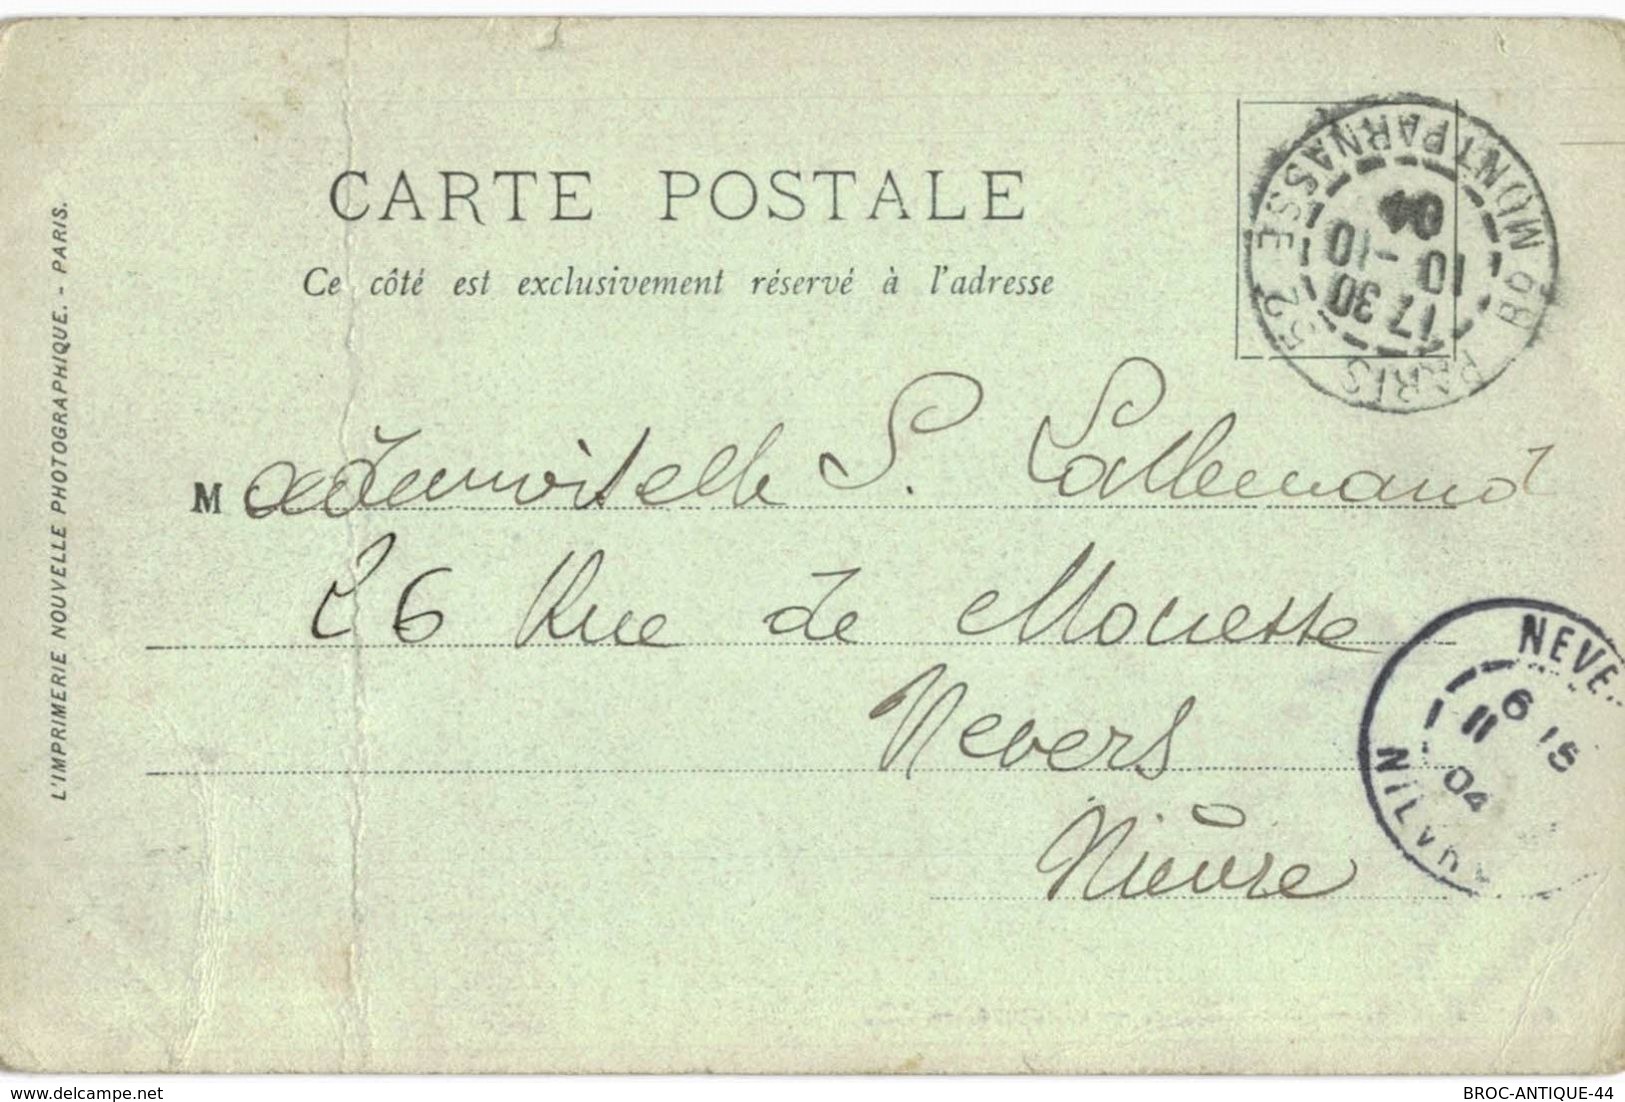 CARTE POSTALE
Ce côté est exclusivement réservé à l'adresse
L'IMPRIMERIE NOUVELLE PHOTOGRAPHIQUE. - PARIS.
Bᴅ MONTPARNASSE
PARIS 52
17 30
10 -10
04
Mademoiselle S. Lallemand
26 Rue de Mouesse
Nevers
Nièvre
NEVE
6 15
11
04
delcampe.net
BROC-ANTIQUE-44